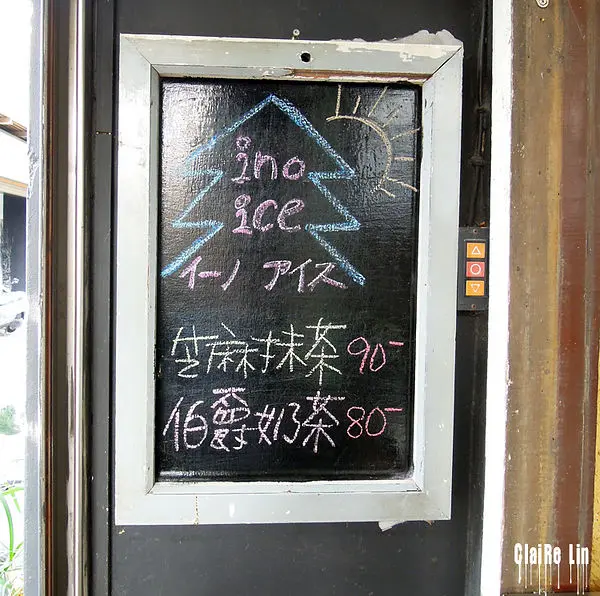 ino
ice
イーノ アイス
芝麻抹茶90-
伯爵奶茶80-
ClaiRe Lin